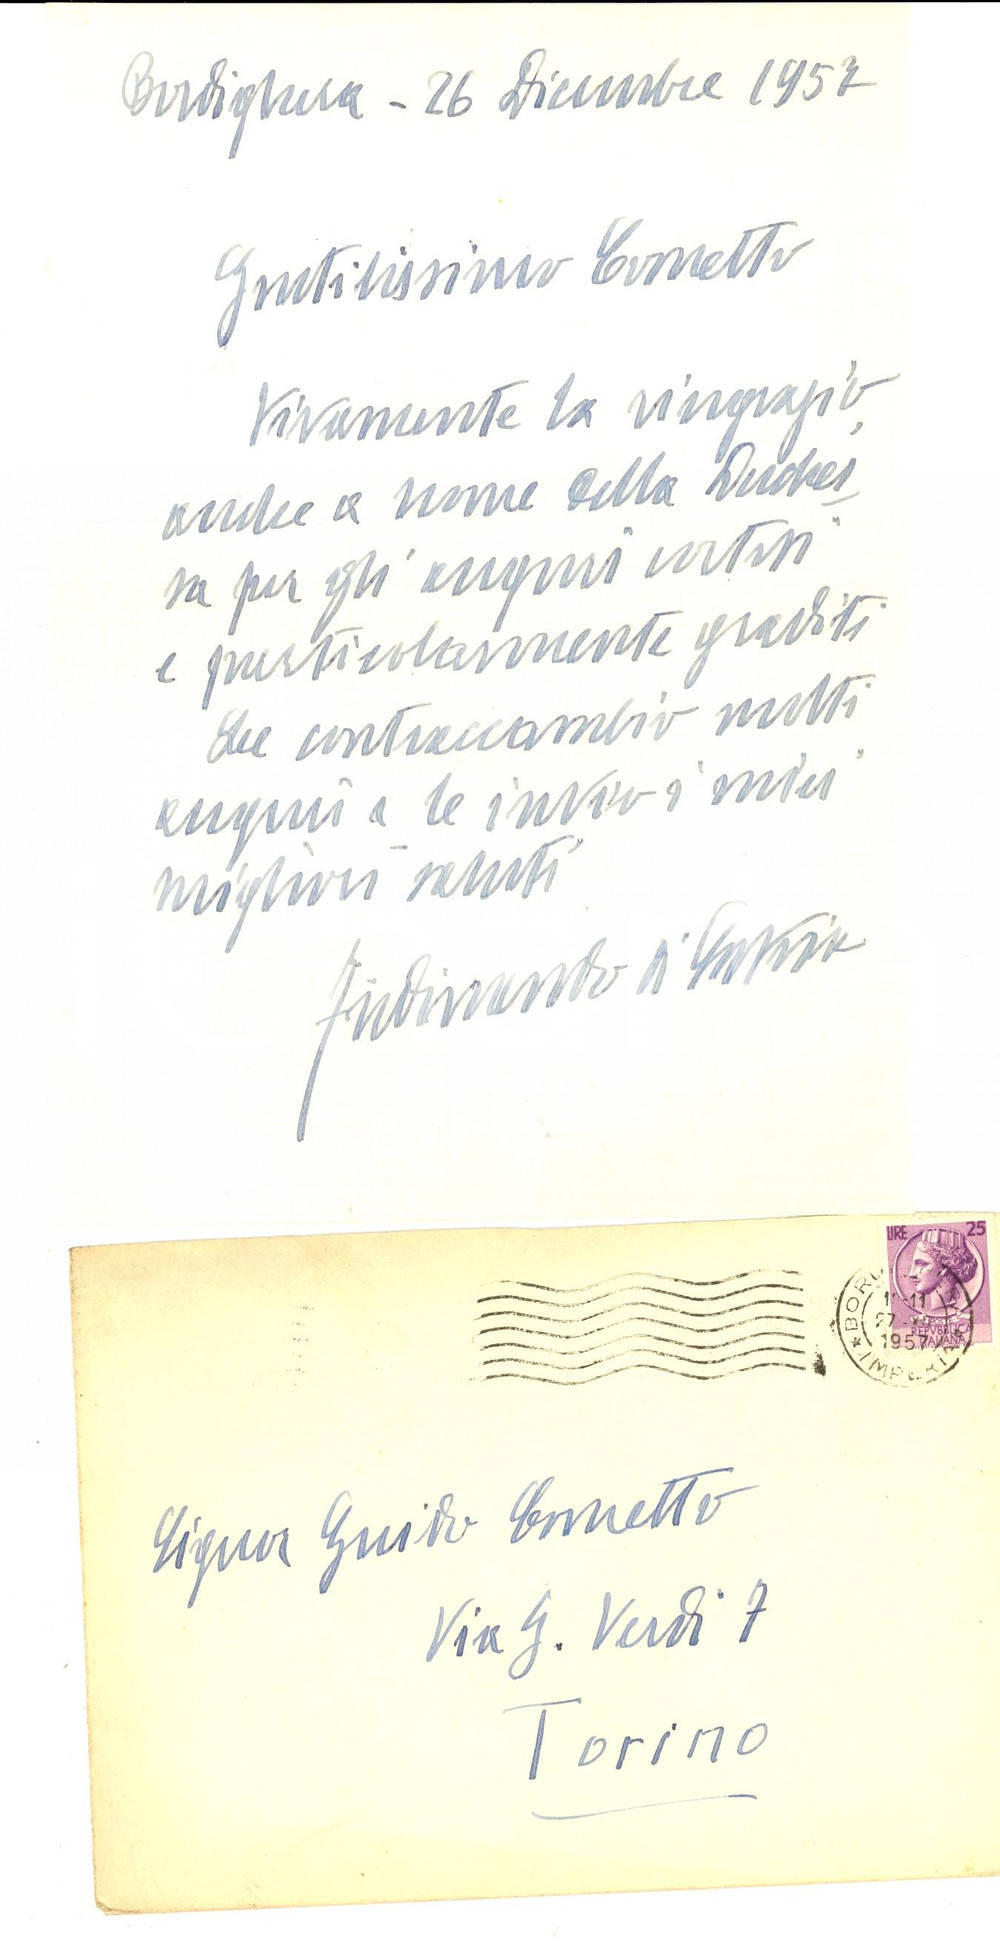 Bordighera - 26 Dicembre 1957
Gentilissimo Cornetto
Vivamente la ringrazio,
anche a nome della Duches
sa per gli auguri cortesi
e particolarmente graditi
Le contraccambio molti
auguri e le invio i miei
migliori saluti
Ferdinando di Savoia
LIRE 25
REPVBBLICA
ITALIANA
BORDIGHERA
11-11
27 XII
1957
IMPERIA
Signor Guido Cornetto
Via G. Verdi 7
Torino